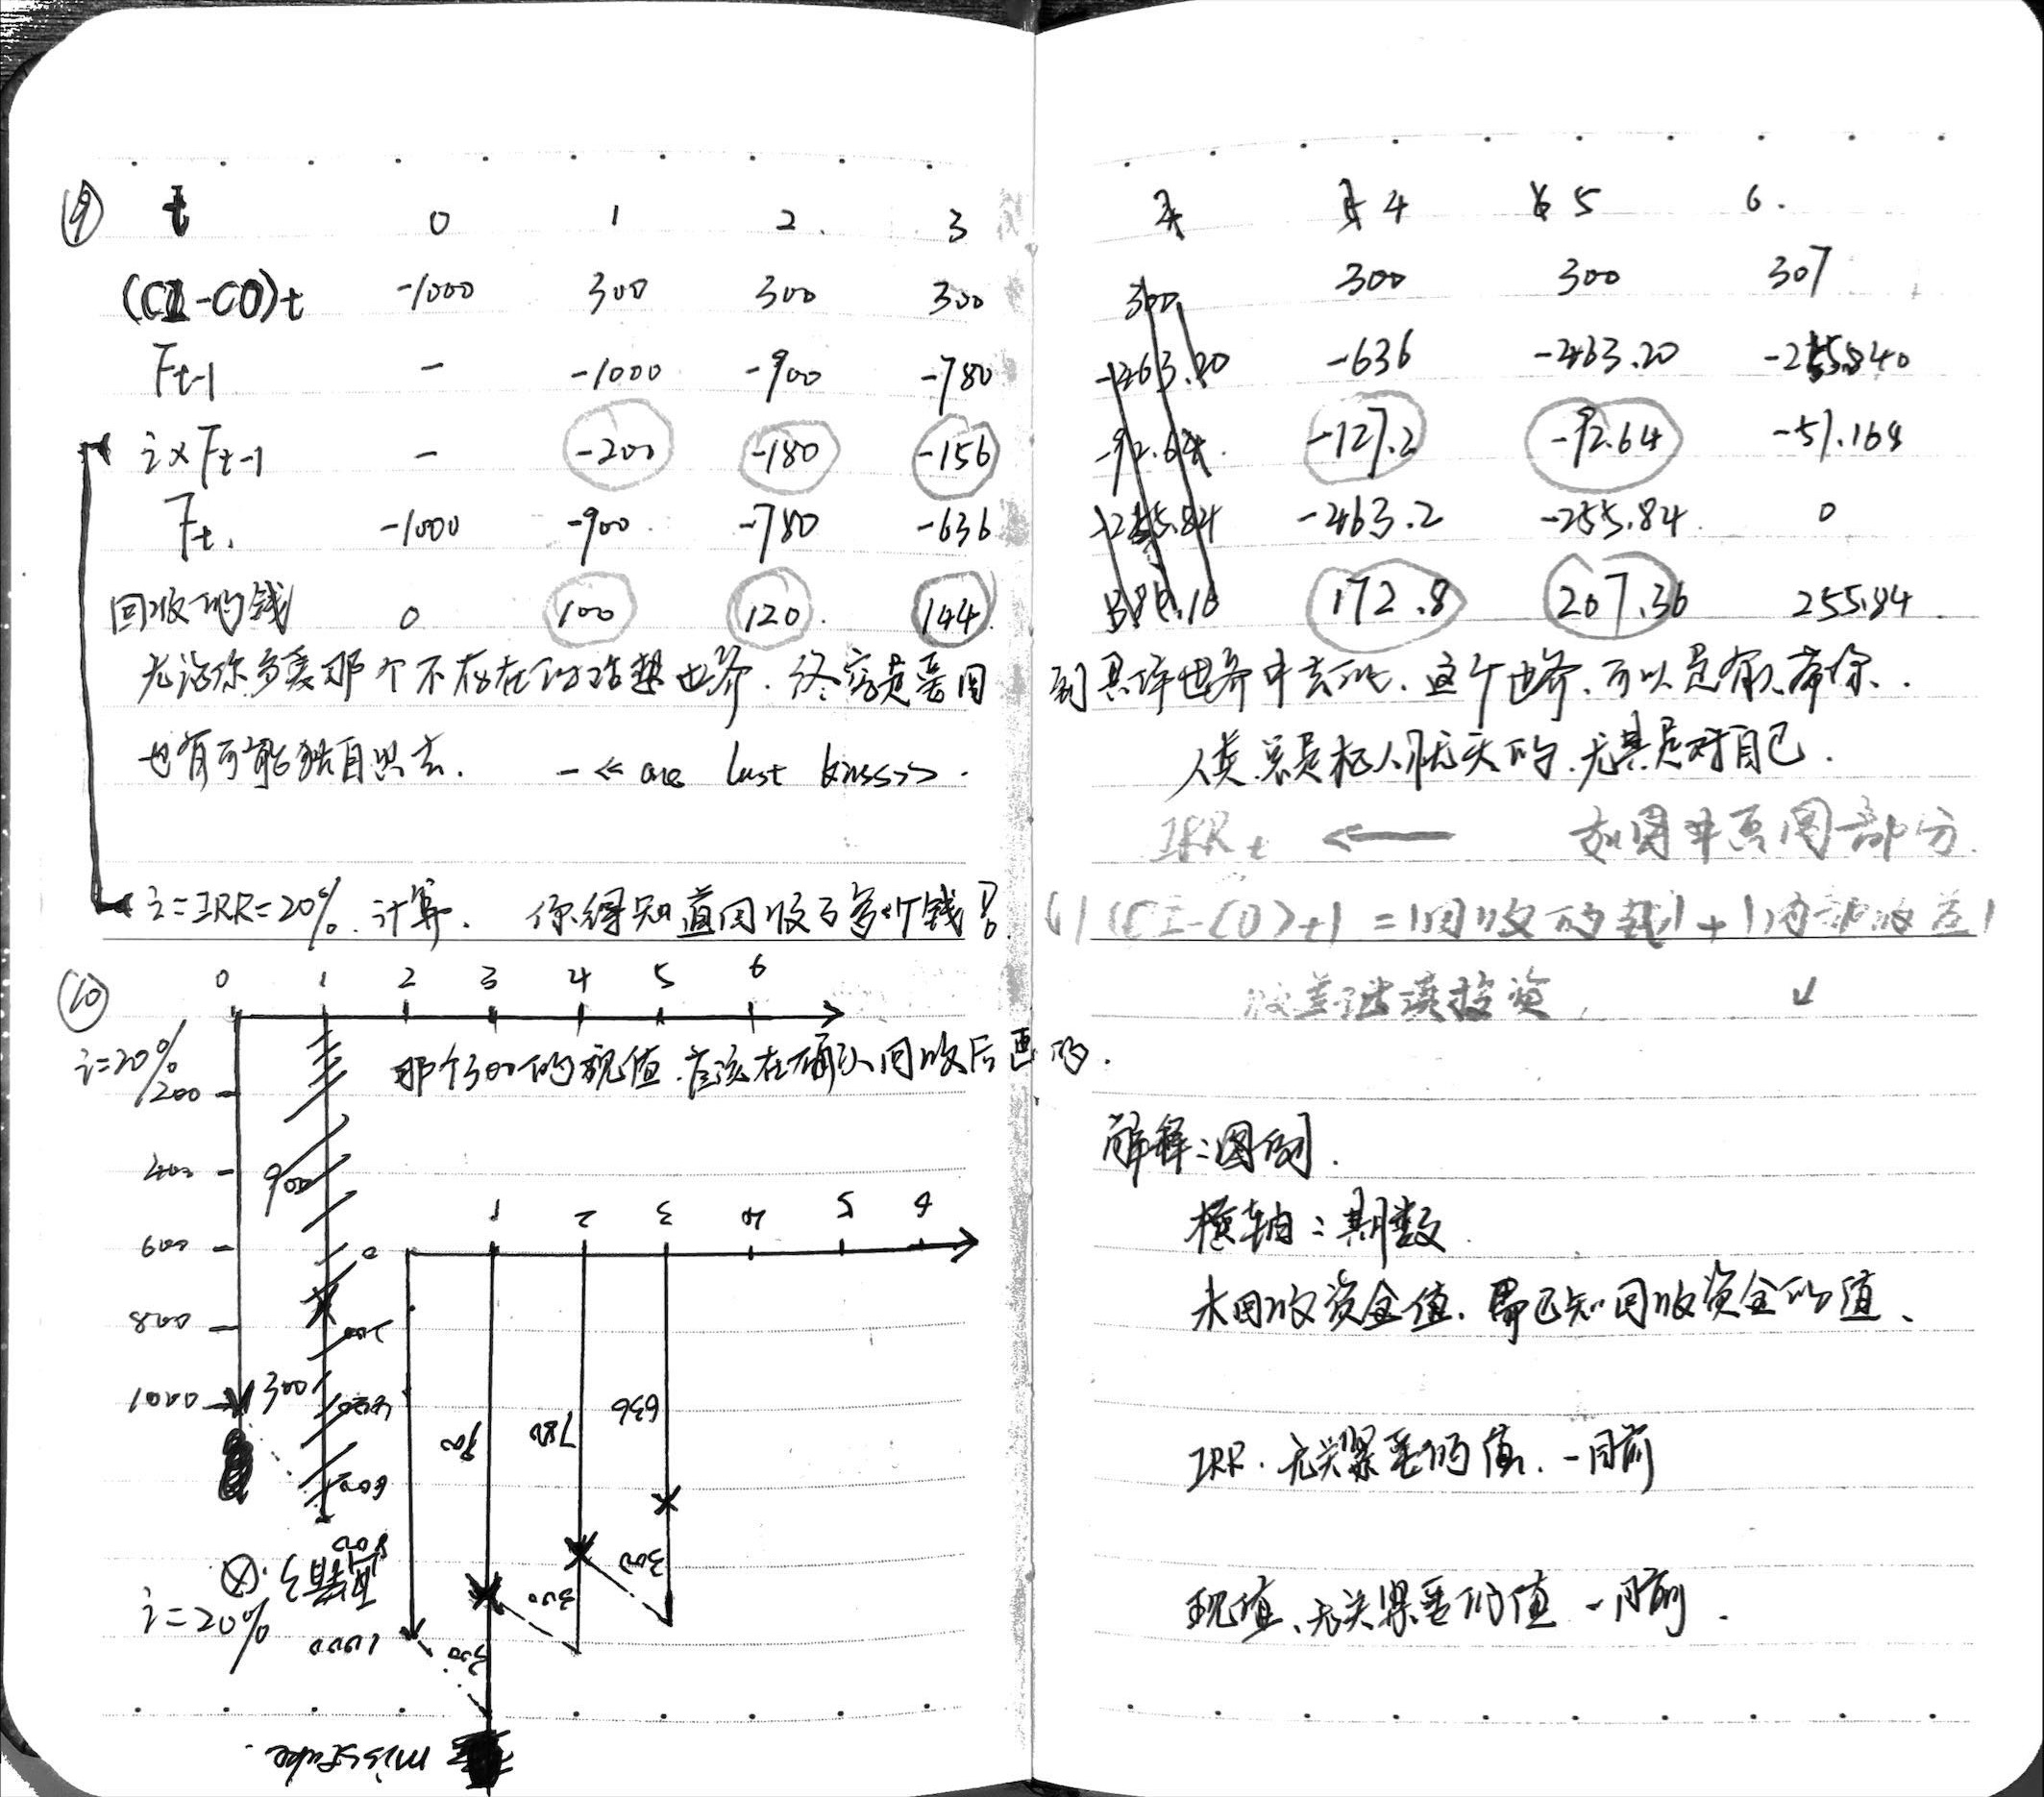 ⑨ t 0 1 2. 3
(CI-CO)t -1000 300 300 300
Ft-1 - -1000 -900 -780
i×Ft-1 - -200 -180 -156
Ft. -1000 -900. -780 -636
回收的钱 0 100 120. 144.
无论你多爱那个不存在的 世界. 终究是要回
也有可能独自 去. -《one last kiss》.
i=IRR=20%. 计算. 你得知道回收了多少个钱?
⑩ 0 1 2 3 4 5 6
i=20%
那个300的现值.应该在确认回收后画的.
200
400
900
600
800
1000 300
0
200
400
600
800
1000
1 2 3 4 5 6
900 780 636
300 300 300
⊗.
i=20%
misstake.
4 5 6.
300 300 300 307
-263.20 -636 -463.20 -255.840
-92.64. -127.2 -92.64 -51.168
-255.84 -463.2 -255.84. 0
172.8 207.36 255.84.
到 世界中去的、这个世界、可以是有人带你.
人类.总是 的.尤其是对自己.
IRRt ← 如图 页圈部分.
|(CI-CO)t| = |回收的钱| + |内部收益|
收益继续投资 ↙
解释:图例.
横轴:期数
未回收资金值.需已知回收资金的值、
IRR.无关紧要的值.-目前
现值、无关紧要的值 -目前.